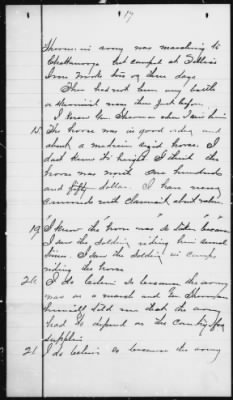 17
Sherman's army was marching to
Chattanooga but camped at Tellico
Iron Works two or three days
There had not been any battle
or skirmish near there just before.
I knew Gen Sherman when I saw him
18. The horse was in good order and
about a medium sized horse. I
dont know his height I think the
horse was worth one hundred
and fifty dollars. I have never
with claimant about
19 I know the horse was taken because
I saw the soldiers riding him several
times. I saw the soldiers in camp
riding the horse
20. I do believe so because the army
was on a march and Gen Sherman
himself told me that the army
had to depend on the country for
supplies
21 I do believe so because the army